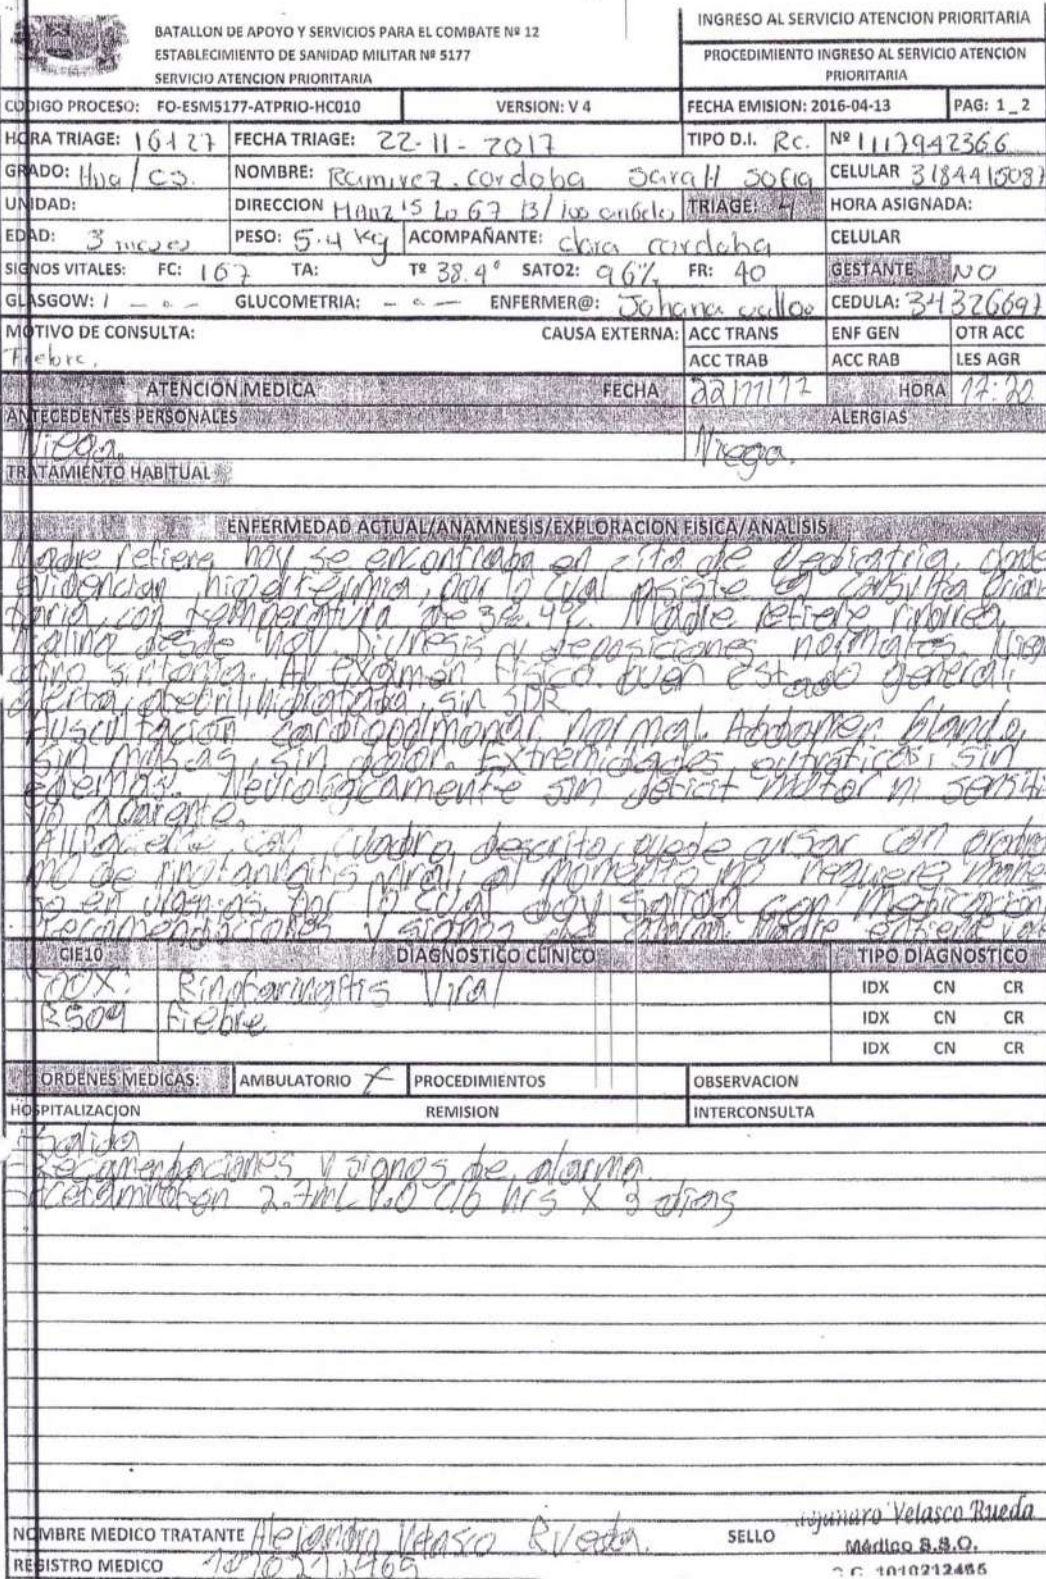 BATALLON DE APOYO Y SERVICIOS PARA EL COMBATE Nº 12
ESTABLECIMIENTO DE SANIDAD MILITAR Nº 5177
SERVICIO ATENCION PRIORITARIA
INGRESO AL SERVICIO ATENCION PRIORITARIA
PROCEDIMIENTO INGRESO AL SERVICIO ATENCION
PRIORITARIA
CODIGO PROCESO: FO-ESM5177-ATPRIO-HC010 VERSION: V 4 FECHA EMISION: 2016-04-13 PAG: 1_2
HORA TRIAGE: 16+27 FECHA TRIAGE: 22-11-2017 TIPO D.I. Rc. Nº 1117942366
GRADO: Hija/cs. NOMBRE: Ramirez cordoba Sarah Sofia CELULAR 3184415087
UNIDAD: DIRECCION Manz 15 67 B/ los TRIAGE: 4 HORA ASIGNADA:
EDAD: 3 meses PESO: 5.4 Kg ACOMPAÑANTE: clara cordoba CELULAR
SIGNOS VITALES: FC: 167 TA: Tº 38.4° SATO2: 96% FR: 40 GESTANTE NO
GLASGOW: / - o - GLUCOMETRIA: - o - ENFERMER@: Johana CEDULA: 34326697
MOTIVO DE CONSULTA: CAUSA EXTERNA: ACC TRANS ENF GEN OTR ACC
Fiebre. ACC TRAB ACC RAB LES AGR
ATENCION MEDICA FECHA 22/11/17 HORA 17:20
ANTECEDENTES PERSONALES ALERGIAS
Niega. Niega.
TRATAMIENTO HABITUAL
ENFERMEDAD ACTUAL/ANAMNESIS/EXPLORACION FISICA/ANALISIS
Madre refiere hoy se encontraba en cita de Pediatria, donde
evidencian hipertermia, por lo cual asiste a consulta priori
taria, con temperatura de 38.4°C. Madre refiere rinorrea
hialina desde hoy. Diuresis y deposiciones normales. Niega
otro sintoma. Al examen fisico buen estado general,
alerta, afebril, hidratada, sin SDR
Auscultación cardiopulmonar normal. Abdomen blando,
sin masas, sin dolor. Extremidades eutroficas, sin
edemas. Neurologicamente sin deficit motor ni sensiti
vo aparente.
con cuadro descrito, puede cursar con
de rinofaringitis viral, al momento no requiere mane
jo en urgencias, por lo cual doy salida con medicación
recomendaciones y signos de alarma. Madre entiende
CIE10 DIAGNOSTICO CLINICO TIPO DIAGNOSTICO
J00X: Rinofaringitis Viral IDX CN CR
R509 Fiebre IDX CN CR
IDX CN CR
ORDENES MEDICAS: AMBULATORIO X PROCEDIMIENTOS OBSERVACION
HOSPITALIZACION REMISION INTERCONSULTA
-Salida
-Recomendaciones y signos de alarma.
-Acetaminofen 2.7mL V.O C/6 hrs X 3 dias
NOMBRE MEDICO TRATANTE Alejandro Velasco Rueda. SELLO Velasco Rueda
Médico S.S.O.
REGISTRO MEDICO 1010212465 C.C. 1010212465